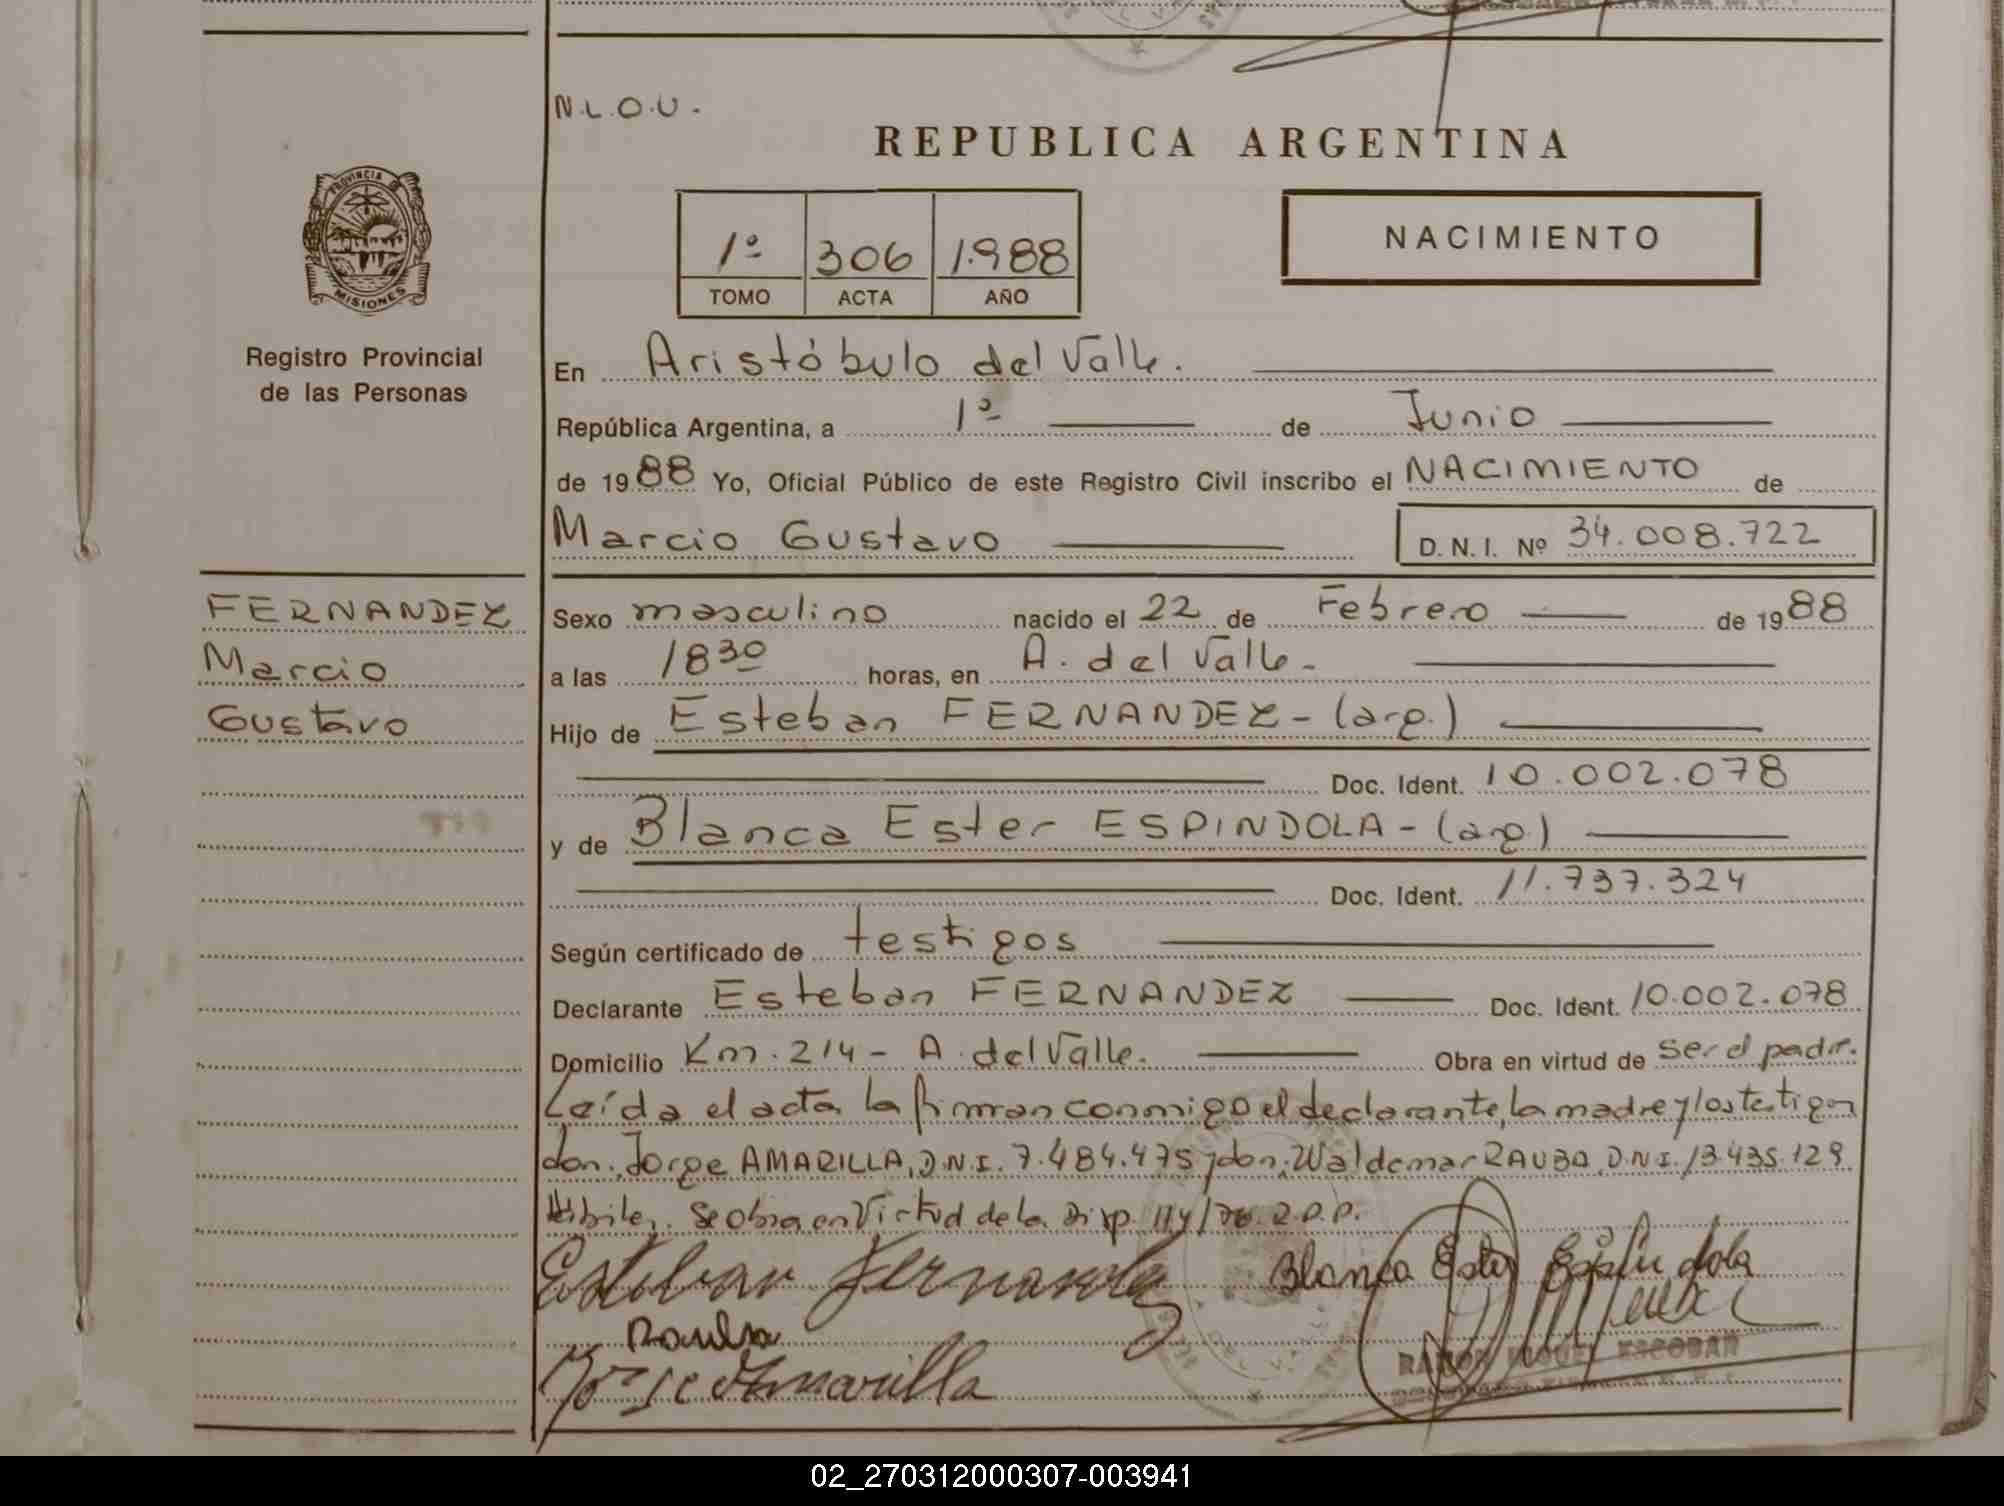 N.L.O.U.-
REPUBLICA ARGENTINA
PROVINCIA DE
MISIONES
1º 306 1.988
TOMO ACTA AÑO
NACIMIENTO
Registro Provincial
de las Personas
En Aristóbulo del Valle.
República Argentina, a 1º de Junio
de 1988 Yo, Oficial Público de este Registro Civil inscribo el NACIMIENTO de
Marcio Gustavo D.N.I. Nº 34.008.722
FERNANDEZ
Marcio
Gustavo
Sexo masculino nacido el 22 de Febrero de 1988
a las 18³⁰ horas, en A. del Valle.-
Hijo de Esteban FERNANDEZ - (arg.)
Doc. Ident. 10.002.078
y de Blanca Ester ESPINDOLA - (arg.)
Doc. Ident. 11.737.324
Según certificado de testigos
Declarante Esteban FERNANDEZ Doc. Ident. 10.002.078
Domicilio Km. 214 - A. del Valle. Obra en virtud de ser el padre.
Leída el acta la firman conmigo el declarante, la madre y los testigos
don. Jorge AMARILLA, D.N.I. 7.484.475 y don. Waldemar RAUBA, D.N.I. 13.435.129
Hábiles. Se obra en Virtud de la Disp. 114/76. R.P.P.
Esteban Fernandez Blanca Ester Espindola
Rauba
Jorge Amarilla
RAMON MIGUEL ESCOBAR
02_270312000307-003941